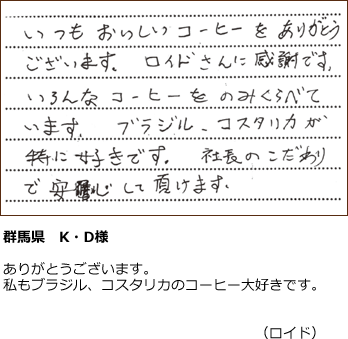 いつも おいしい コーヒーを ありがとう
ございます。 ロイドさんに 感謝です。
いろんな コーヒーを のみくらべて
います。 ブラジル、コスタリカが
特に 好きです。 社長の こだわり
で 安心して 頂けます。
群馬県 K・D様
ありがとうございます。
私もブラジル、コスタリカのコーヒー大好きです。
（ロイド）